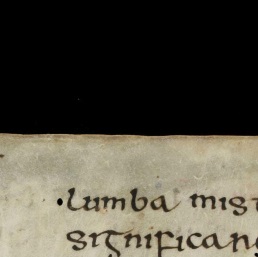 ·lumba mist
significan